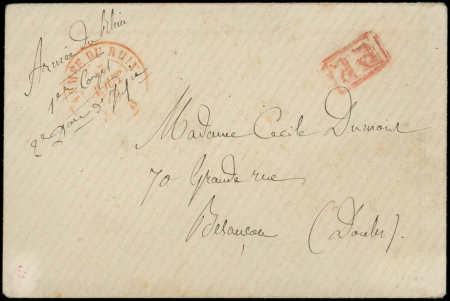 Armée du Rhin
1er Corps
2e Don d'Inf
ARMÉE DU RHIN
P.P.
Madame Cecile Dumont
70 Grande rue
Besançon (Doubs).